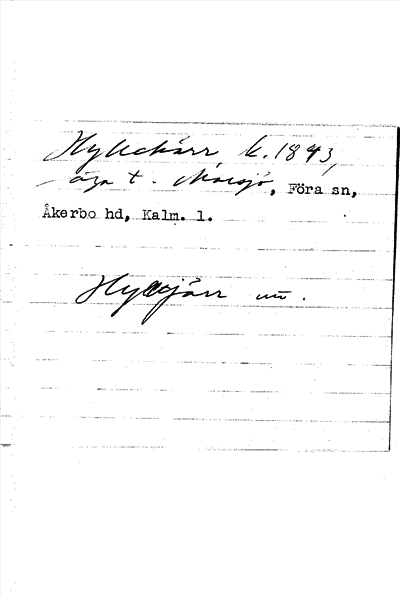 Hyllekärr k. 1843,
äga t. Marsjö, Föra sn,
Åkerbo hd, Kalm. l.
Hyllkjärr